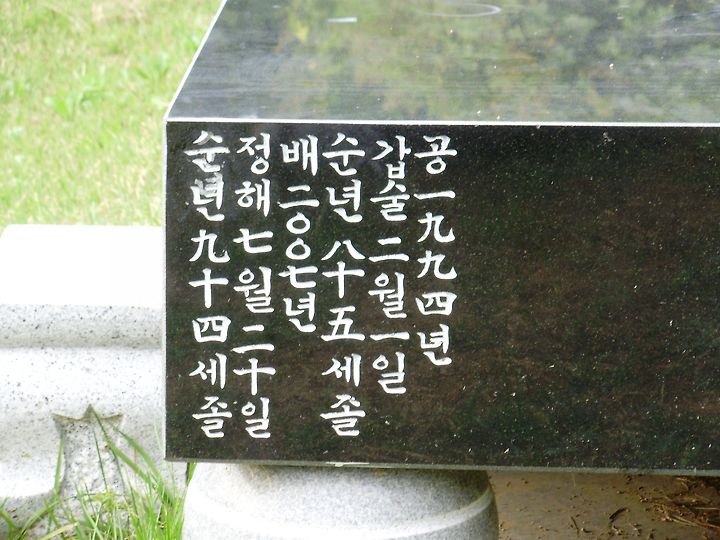 공一九九四년
갑술二월一일
순년八十五세졸
배二〇〇七년
정해七월二十일
순년九十四세졸